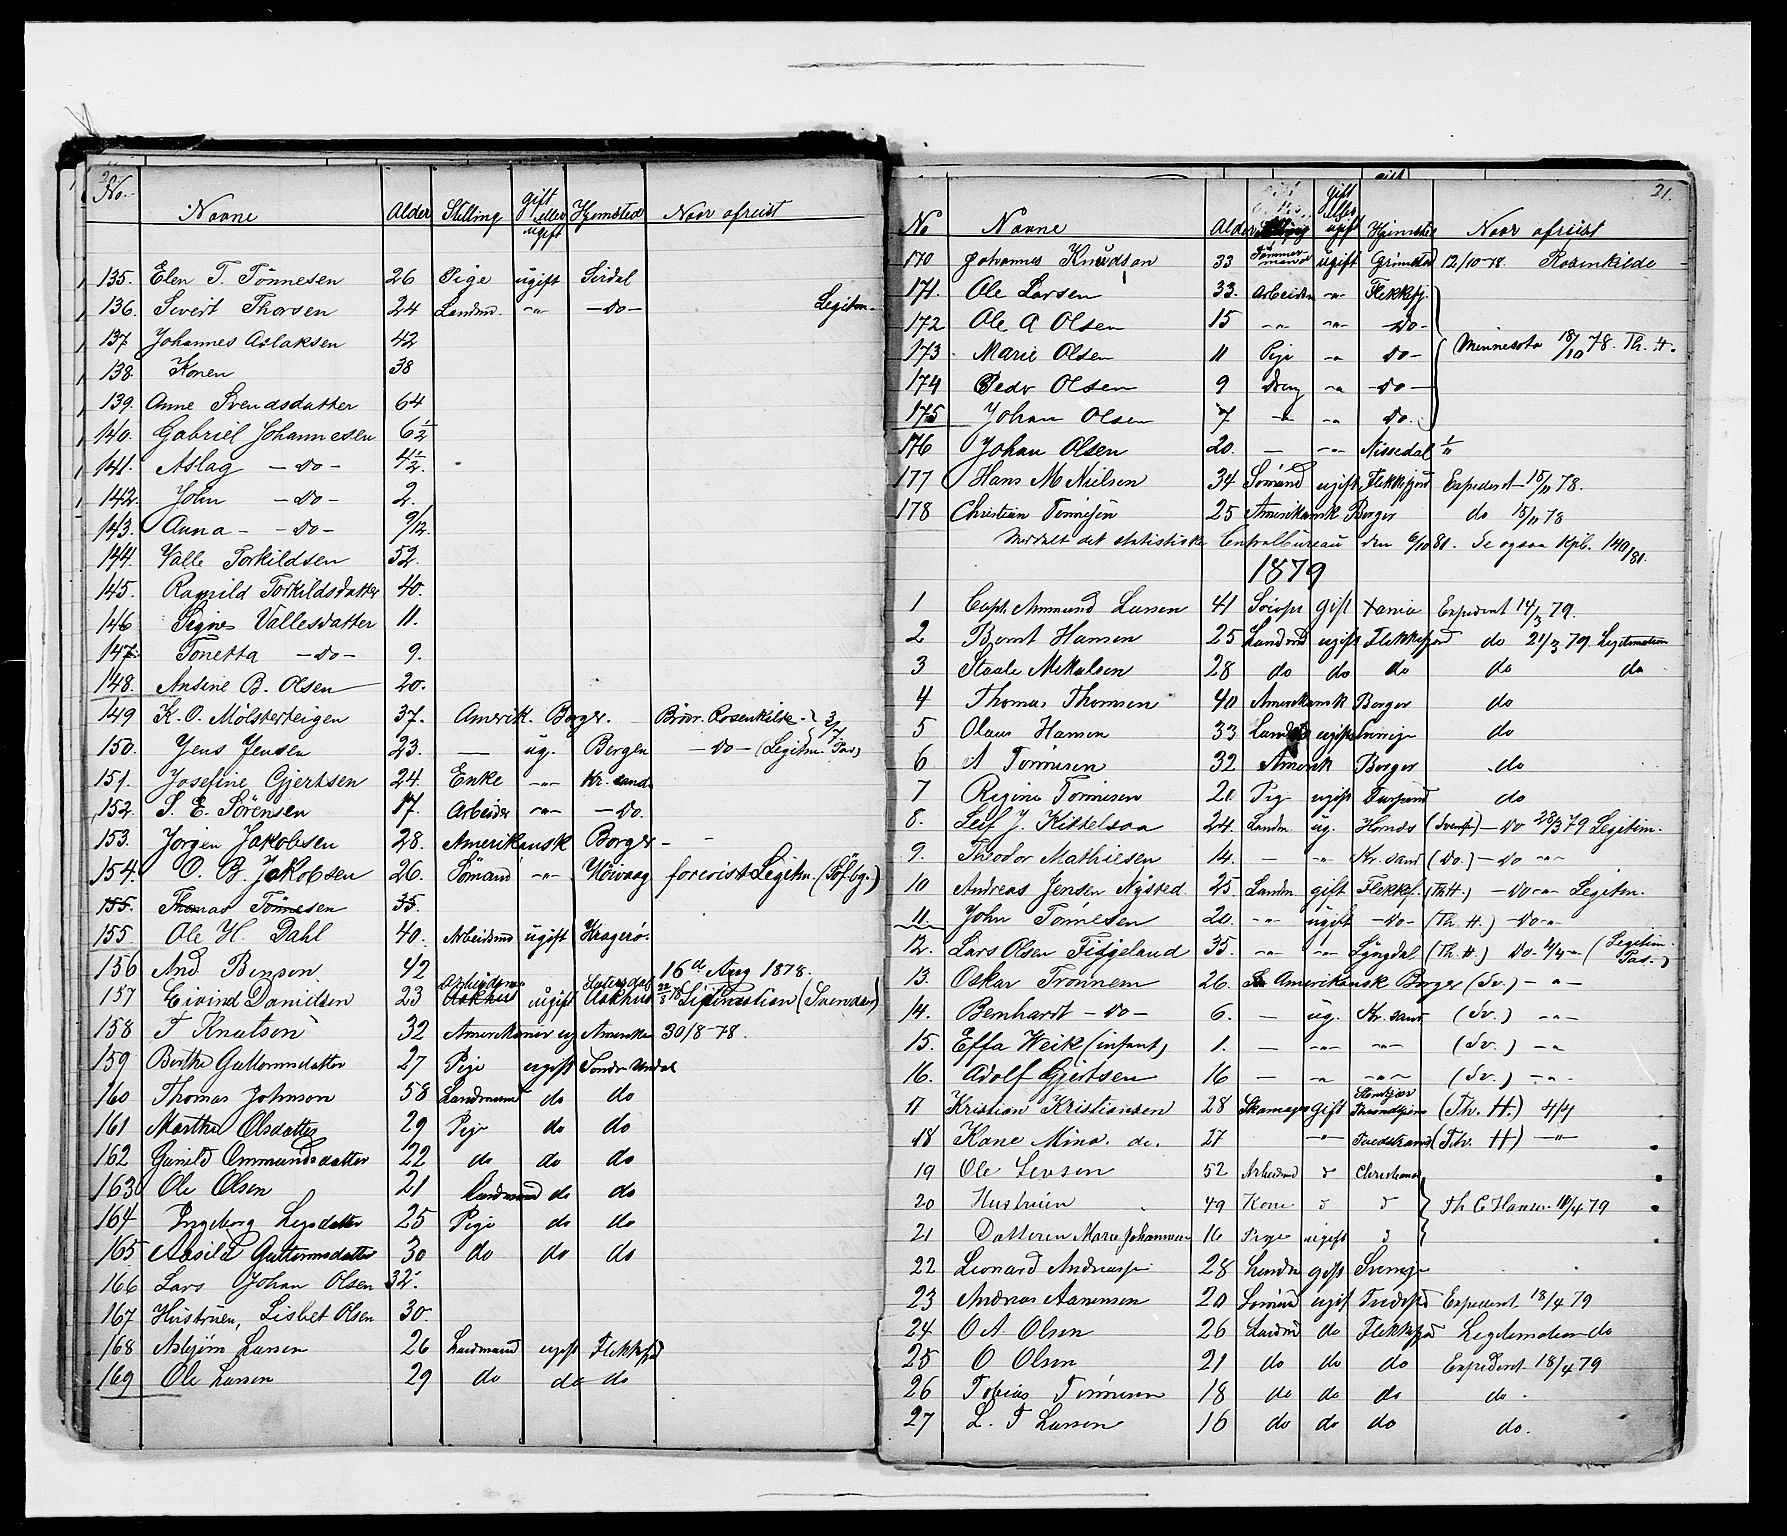 20
No. Navne Alder Stilling gift eller ugift Hjemsted Naar afreist
135. Elen T. Tønnesen 26 Pige ugift Sirdal
136. Sivert Thorsen 24 Landm. -"- -Do- Legitm.
137 Johannes Aslaksen 42
138. Konen 38
139. Anne Svendsdatter 64
140. Gabriel Johannesen 6½
141. Aslag -Do- 4½.
142. John -Do- 2.
143. Anna -Do- 9/12.
144. Valle Torkildsen 52.
145. Ragnild Torkildsdatter 40.
146 Signe Vallesdatter 11.
147. Tonetta -Do- 9.
148. Andine B. Olsen 20.
149 K. O. Mølsterteigen 37. Amerik. Borger. Brødr. Rosenkilde. 3/7
150. Jens Jensen 23. — ug. Bergen -Do- (Legitm. Pas)
151. Josefine Gjertsen 24. Enke -"- Kr.sand
152. S. E. Sörensen 17. Arbeider -"- -Do.
153. Jørgen Jakobsen 28. Amerikansk Borger -
154. O. B. Jakobsen 26. Sömand -"- Höivaag foreviist Legitm. (Söf.bg.)
155. Thomas Tönnesen 35.
155 Ole H. Dahl 40. Arbeidsmd ugift Kragerö.
156 And Benson 42 16de Aug 1878.
157 Eivind Danielsen 23 Arbeidsm ugift Sætersdal Legitimation (Svendsen)
158 T Knutson 32 Amerikaner ug Amerika 30/8-78.
159 Berthe Guttormsdatter 27 Pige ugift Söndr Undal
160 Thomas Johnson 58 Landmand do do
161 Marthe Olsdatter 29 Pige do do
162 Gunild Ommundsdatter 22 do do do
163 Ole Olsen 21 Landmand do do
164 Ingeborg 25 Pige do do
165. Aasild Guttormsdatter 30 do do do
166 Lars Johan Olsen 32.
167 Hustruen, Lisbet Olsen 30.
168 Asbjørn Larsen 26 Landmand ugift Flekkefjd
169 Ole Larsen 29 do do do
21.
No Navne Alder Stilling gift eller ugift Hjemsted Naar afreist
170 Johannes Knudsen 33 Tømmermand ugift Grimstad 12/10-78 Rosenkilde
171. Ole Larsen 33. Arbeider -"- Flekkefj.
172 Ole A Olsen 15 -"- -"- -Do-
173. Marie Olsen 11 Pige -"- Do- Minnesota 18/10 78. Th. H.
174 Peder Olsen 9 Dreng -"- -Do-
175 Johan Olsen 7 -"- -"- Do.
176 Johan Olsen 20. — -"- Nissedal 1/11
177 Hans M Nielsen 34 Sömand ugift Flekkefjord Expederet 15/11 78.
178 Christian Tønnesen 25 Amerikansk Borger do 15/11 78
Meddelt det statistiske Centralbureau den 6/10 81. Se ogsaa Kpb. 140/81.
1879
1 Capt. Ammund Larsen 41 gift Xania Expederet 14/3 79.
2 Bernt Hansen 25 Landmd ugift Flekkefjord do 21/3 79. Legitimation
3 Staale Mikalsen 28 do do do do do
4 Thomas Thomsen 40 Amerikansk Borger do
5 Olaus Hansen 33 ugift Sverige do
6 A Tønnesen 32 Amerik Borger do
7 Regine Tönnesen 20 Pige ugift Farsund do
8. Leif J. Kittelsaa 24. Landm. ug. (Svends.) - Do 28/3 79 Legitim.
9. Theodor Mathiesen 14. — -"- Kr.sand (Do.) - Do -"-
10 Andreas Jensen Nysted 25. Landm. gift Flekkef. (Th H.) - Do -"- Legitm.
11. John Tønnesen 20. -"- ugift -Do- (Th. H.) -Do-"-
12. Lars Olsen Fidjeland 35. -"- -"- Lyngdal (Th. H.) Do. 4/4 -"- (Legitim. Pas.)
13. Oskar Tronnem 26. Amerikansk Borger (Sv.) -"-
14. Bernhardt -Do- 6. - ug. Kr.sand (Sv.) -"-
15. Effa Weik (infant) 1. - -"- -"- (Sv.) -"-
16. Adolf Gjertsen 16 - -"- -"- (Sv.) -"-.
17 Kristian Kristiansen 28 Skomager gift Stenkjær Throndhjem (Th. H.) 4/4
18 Kone Mina do. 27 -"- Tvedestrand (Th. H) -"-
19 Ole Sevsen 52 Arbeidsmd Christiansd
20 Hustruen 49 Kone Th. C Hansen 10/4 79
21 Datteren Marie Johannessen 16 Pige ugift
22 Leonard 28 Landm gift Sverige
23 Andreas Aanensen 20 Sömand ugift Tvedestrd Expederet 18/4 79
24 O A Olsen 26 Landmd do Flekkefjd Legitimation do
25 O Olsen 21 do do do Expederet 18/4 79
26 Tobias Tönnesen 18 do do do do.
27 L. T Larsen 16 do do do do.